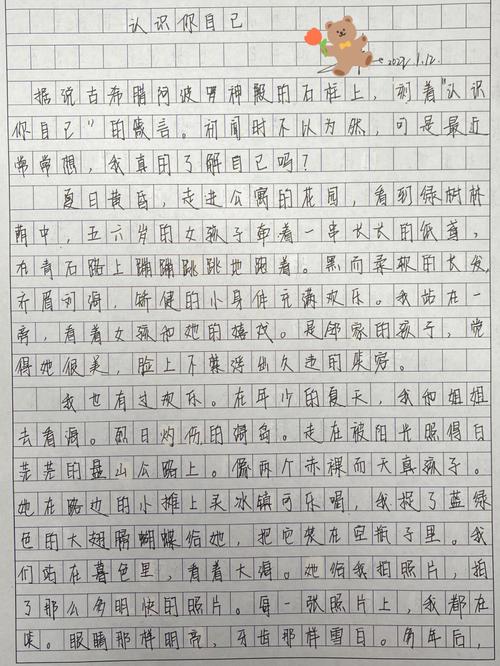 认识你自己
2023.1.12.
据说古希腊阿波罗神殿的石柱上，刻着“认识
你自己”的箴言。初闻时不以为然，可是最近
常常想，我真的了解自己吗？
夏日黄昏，走进公寓的花园，看到绿树林
荫中，五六岁的女孩子牵着一串长长的纸鸢，
在青石路上蹦蹦跳跳地跑着。黑而柔软的长发，
齐眉刘海，矫健的小身体充满欢乐。我站在一
旁，看着女孩和她的嬉戏。是邻家的孩子，觉
得她很美，脸上不禁浮出久违的笑容。
我也有过欢乐。在年少的夏天，我和姐姐
去看海。烈日灼伤的海岛。走在被阳光照得白
茫茫的盘山公路上。像两个赤裸而天真孩子。
她在路边的小摊上买冰镇可乐喝，我捉了蓝绿
色的大翅膀蝴蝶给她，把它装在空瓶子里。我
们站在暮色里，看着大海。她给我拍照片，拍
了那么多明快的照片。每一张照片上，我都在
笑。眼睛那样明亮，牙齿那样雪白。多年后，